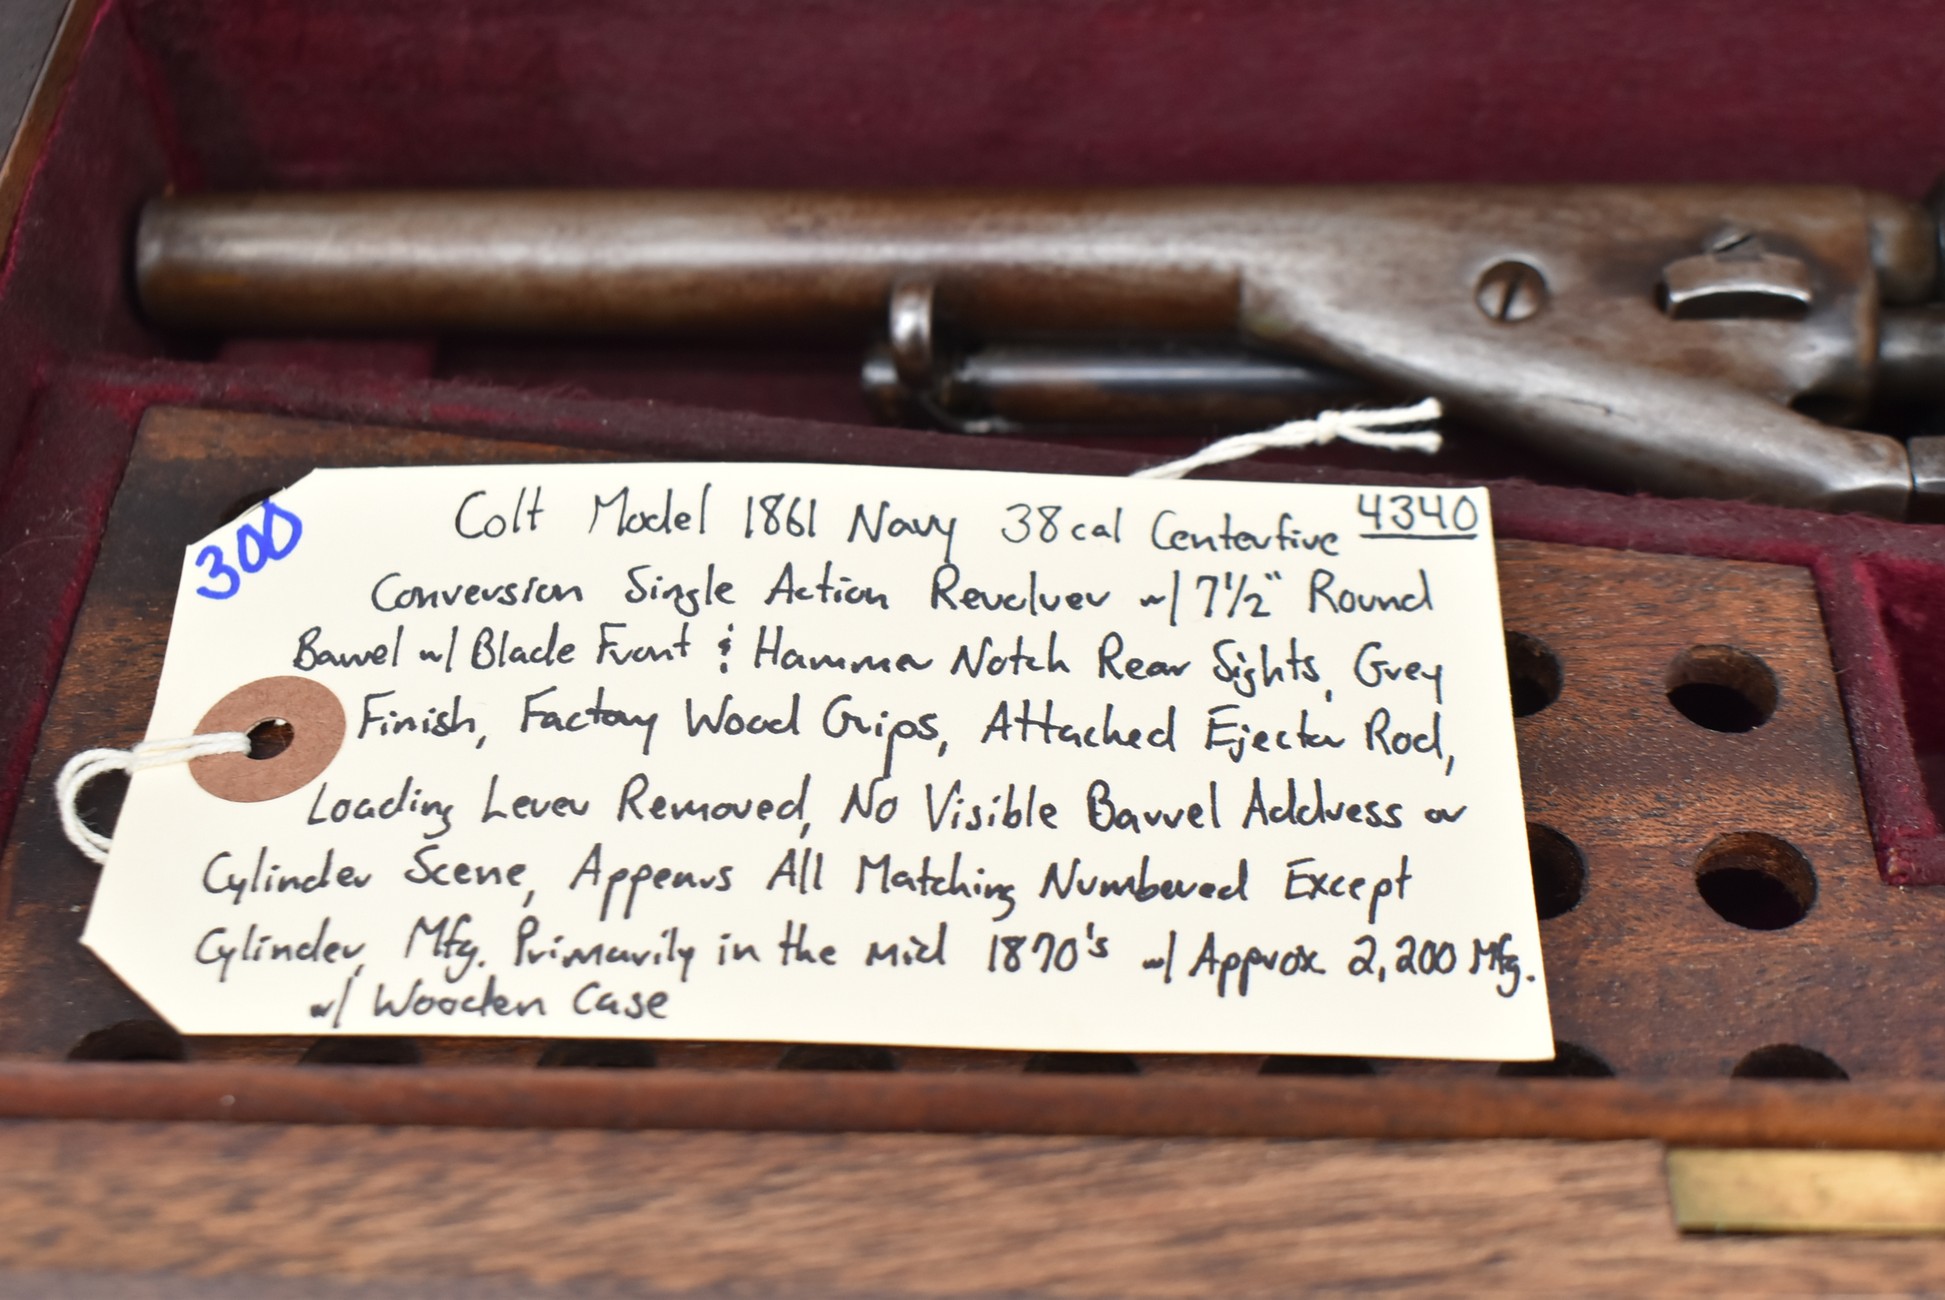 300
4340
Colt Model 1861 Navy 38cal Centerfire
Conversion Single Action Revolver w/ 7 1/2" Round
Barrel w/ Blade Front & Hammer Notch Rear Sights, Grey
Finish, Factory Wood Grips, Attached Ejector Rod,
Loading Lever Removed, No Visible Barrel Address or
Cylinder Scene, Appears All Matching Numbered Except
Cylinder, Mfg. Primarily in the mid 1870's w/ Approx. 2,200 Mfg.
w/ Wooden Case